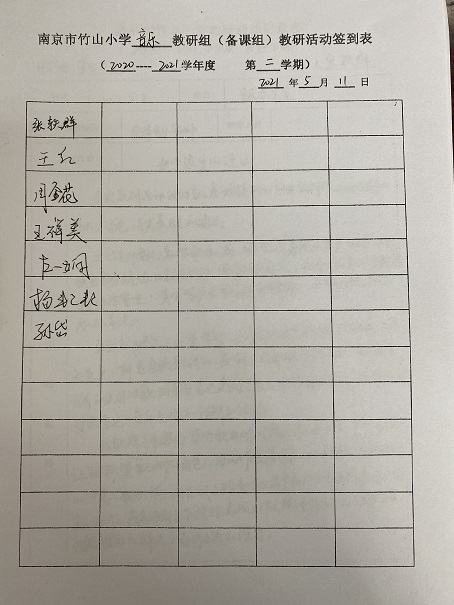 南京市竹山小学 音乐 教研组（备课组）教研活动签到表
（2020----2021学年度 第二学期）
2021 年 5 月 11 日
王红
周金花
王祥美
孙岱